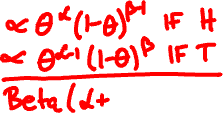 ∝ θ^α (1-θ)^β-1 IF H
∝ θ^α-1 (1-θ)^β IF T
Beta(α+